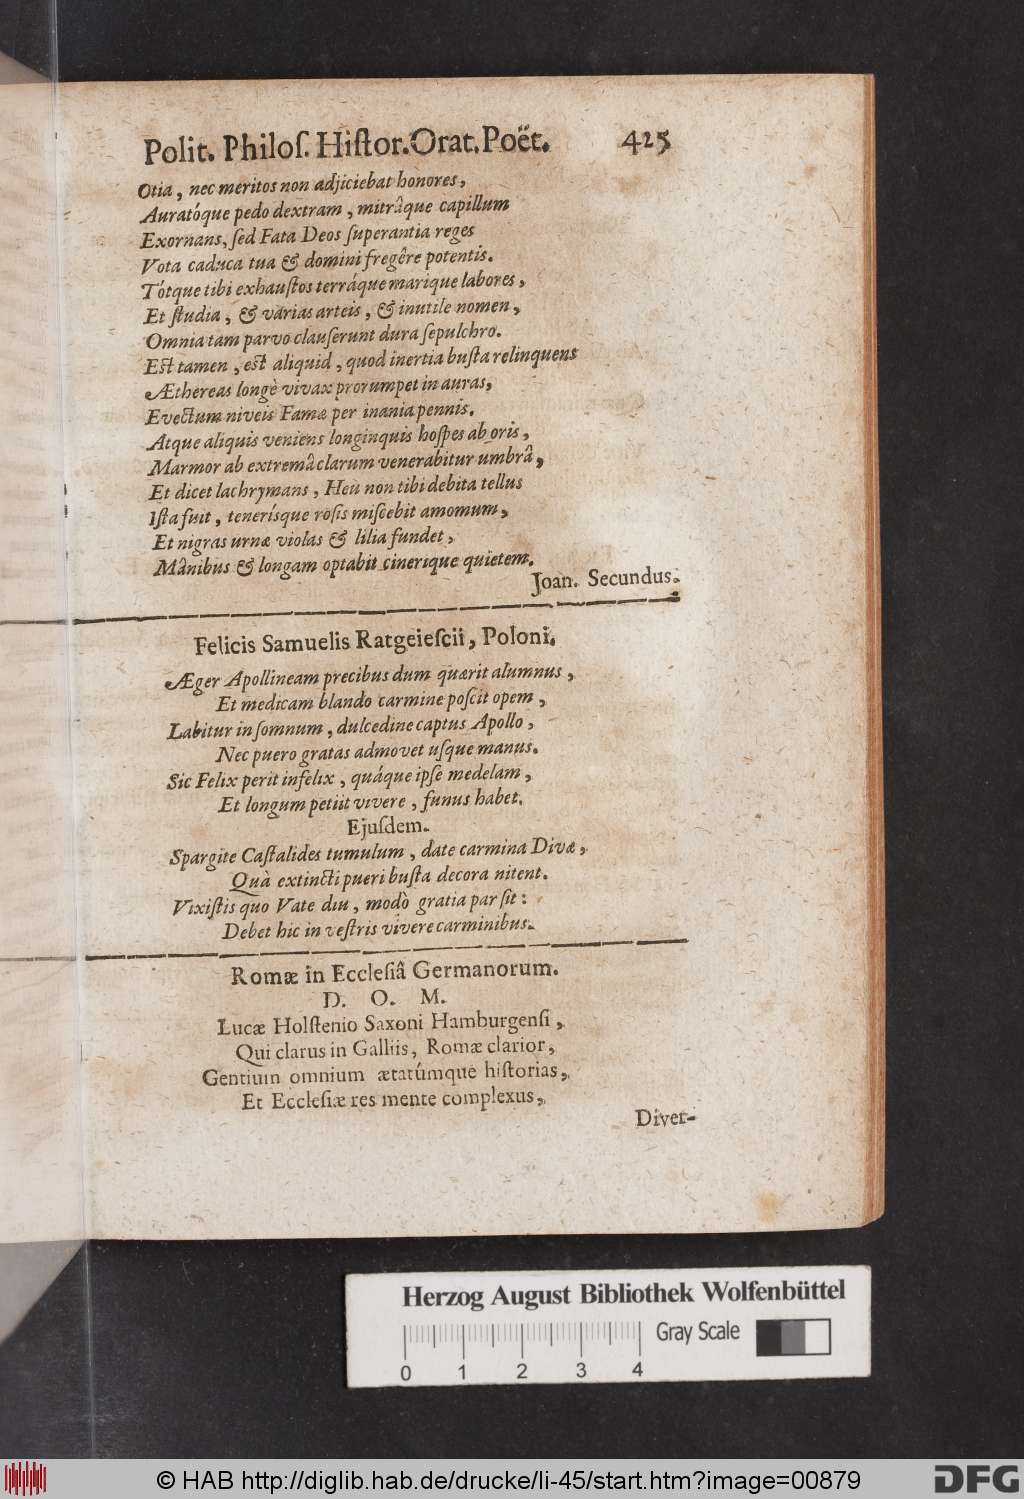 Polit. Philoſ. Hiſtor. Orat. Poët. 425
Otia, nec meritos non adjiciebat honores,
Auratóque pedo dextram, mitrâque capillum
Exornans, ſed Fata Deos ſuperantia reges
Vota caduca tua & domini fregêre potentis.
Tótque tibi exhauſtos terráque marique labores,
Et ſtudia, & várias arteis, & inutile nomen,
Omnia tam parvo clauſerunt dura ſepulchro.
Eſt tamen, eſt aliquid, quod inertia buſta relinquens
Æthereas longè vivax prorumpet in auras,
Evectum niveis Famæ per inania pennis.
Atque aliquis veniens longinquis hoſpes ab oris,
Marmor ab extremâ clarum venerabitur umbrâ,
Et dicet lachrymans, Heu non tibi debita tellus
Iſta fuit, tenerísque roſis miſcebit amomum,
Et nigras urnæ violas & lilia fundet,
Mânibus & longam optabit cinerique quietem.
Joan. Secundus.
Felicis Samuelis Ratgeieſcii, Poloni.
Æger Apollineam precibus dum quærit alumnus,
Et medicam blando carmine poſcit opem,
Labitur in ſomnum, dulcedine captus Apollo,
Nec puero gratas admovet uſque manus.
Sic Felix perit infelix, quáque ipſe medelam,
Et longum petiit vivere, funus habet.
Ejuſdem.
Spargite Caſtalides tumulum, date carmina Divæ,
Quà extincti pueri buſta decora nitent.
Vixiſtis quo Vate diu, modò gratia par ſit:
Debet hic in veſtris vivere carminibus.
Romæ in Eccleſiâ Germanorum.
D. O. M.
Lucæ Holſtenio Saxoni Hamburgenſi,
Qui clarus in Galliis, Romæ clarior,
Gentium omnium ætatúmque hiſtorias,
Et Eccleſiæ res mente complexus,
Diver-
Herzog August Bibliothek Wolfenbüttel
Gray Scale
0 1 2 3 4
© HAB http://diglib.hab.de/drucke/li-45/start.htm?image=00879
DFG